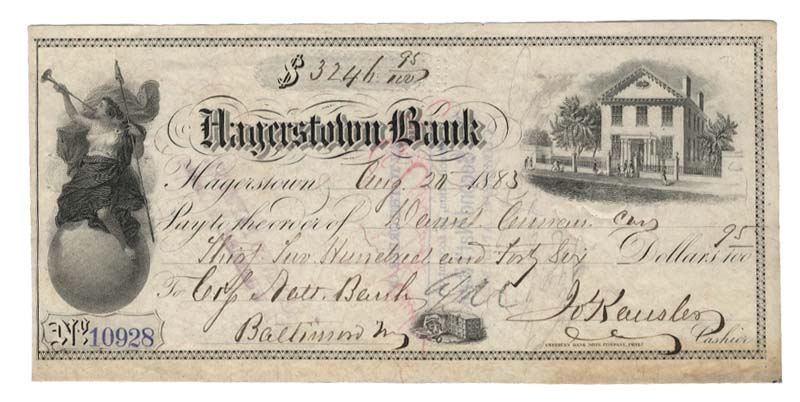 $ 3246 95/100
Hagerstown Bank
Hagerstown Aug 1883
Pay to the order of Daniel
Thirty Two Hundred and Forty Six Dollars 95/100
To Natl. Bank
Baltimore
Jo Kausler
Cashier
No. 10928
AMERICAN BANK NOTE COMPANY, PHILA.